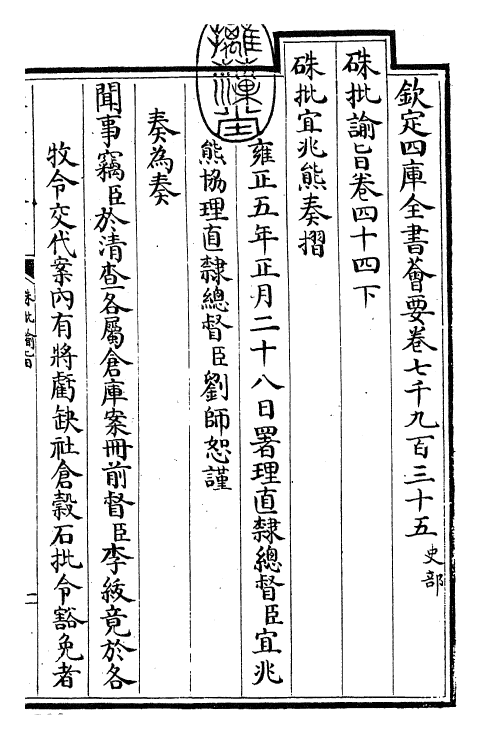 欽定四庫全書薈要卷七千九百三十五 史部
硃批諭旨卷四十四下
硃批宜兆熊奏摺
雍正五年正月二十八日署理直隸總督臣宜兆
熊協理直隸總督臣劉師恕謹
奏為奏
聞事竊臣於清查各屬倉庫案冊前督臣李紱竟於各
牧令交代案內有將虧缺社倉穀石批令豁免者
硃批諭旨